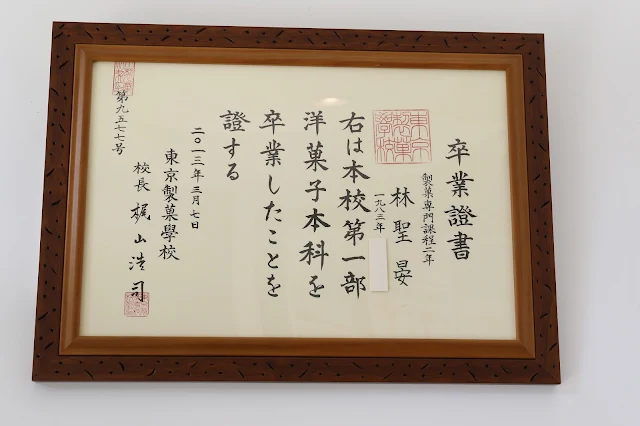 卒業證書
製菓専門課程二年
林聖晏
一九八三年
右は本校第一部
洋菓子本科を
卒業したことを
證する
二〇一三年三月七日
東京製菓學校
校長 梶山浩司
第九五七七号
東京製菓學校